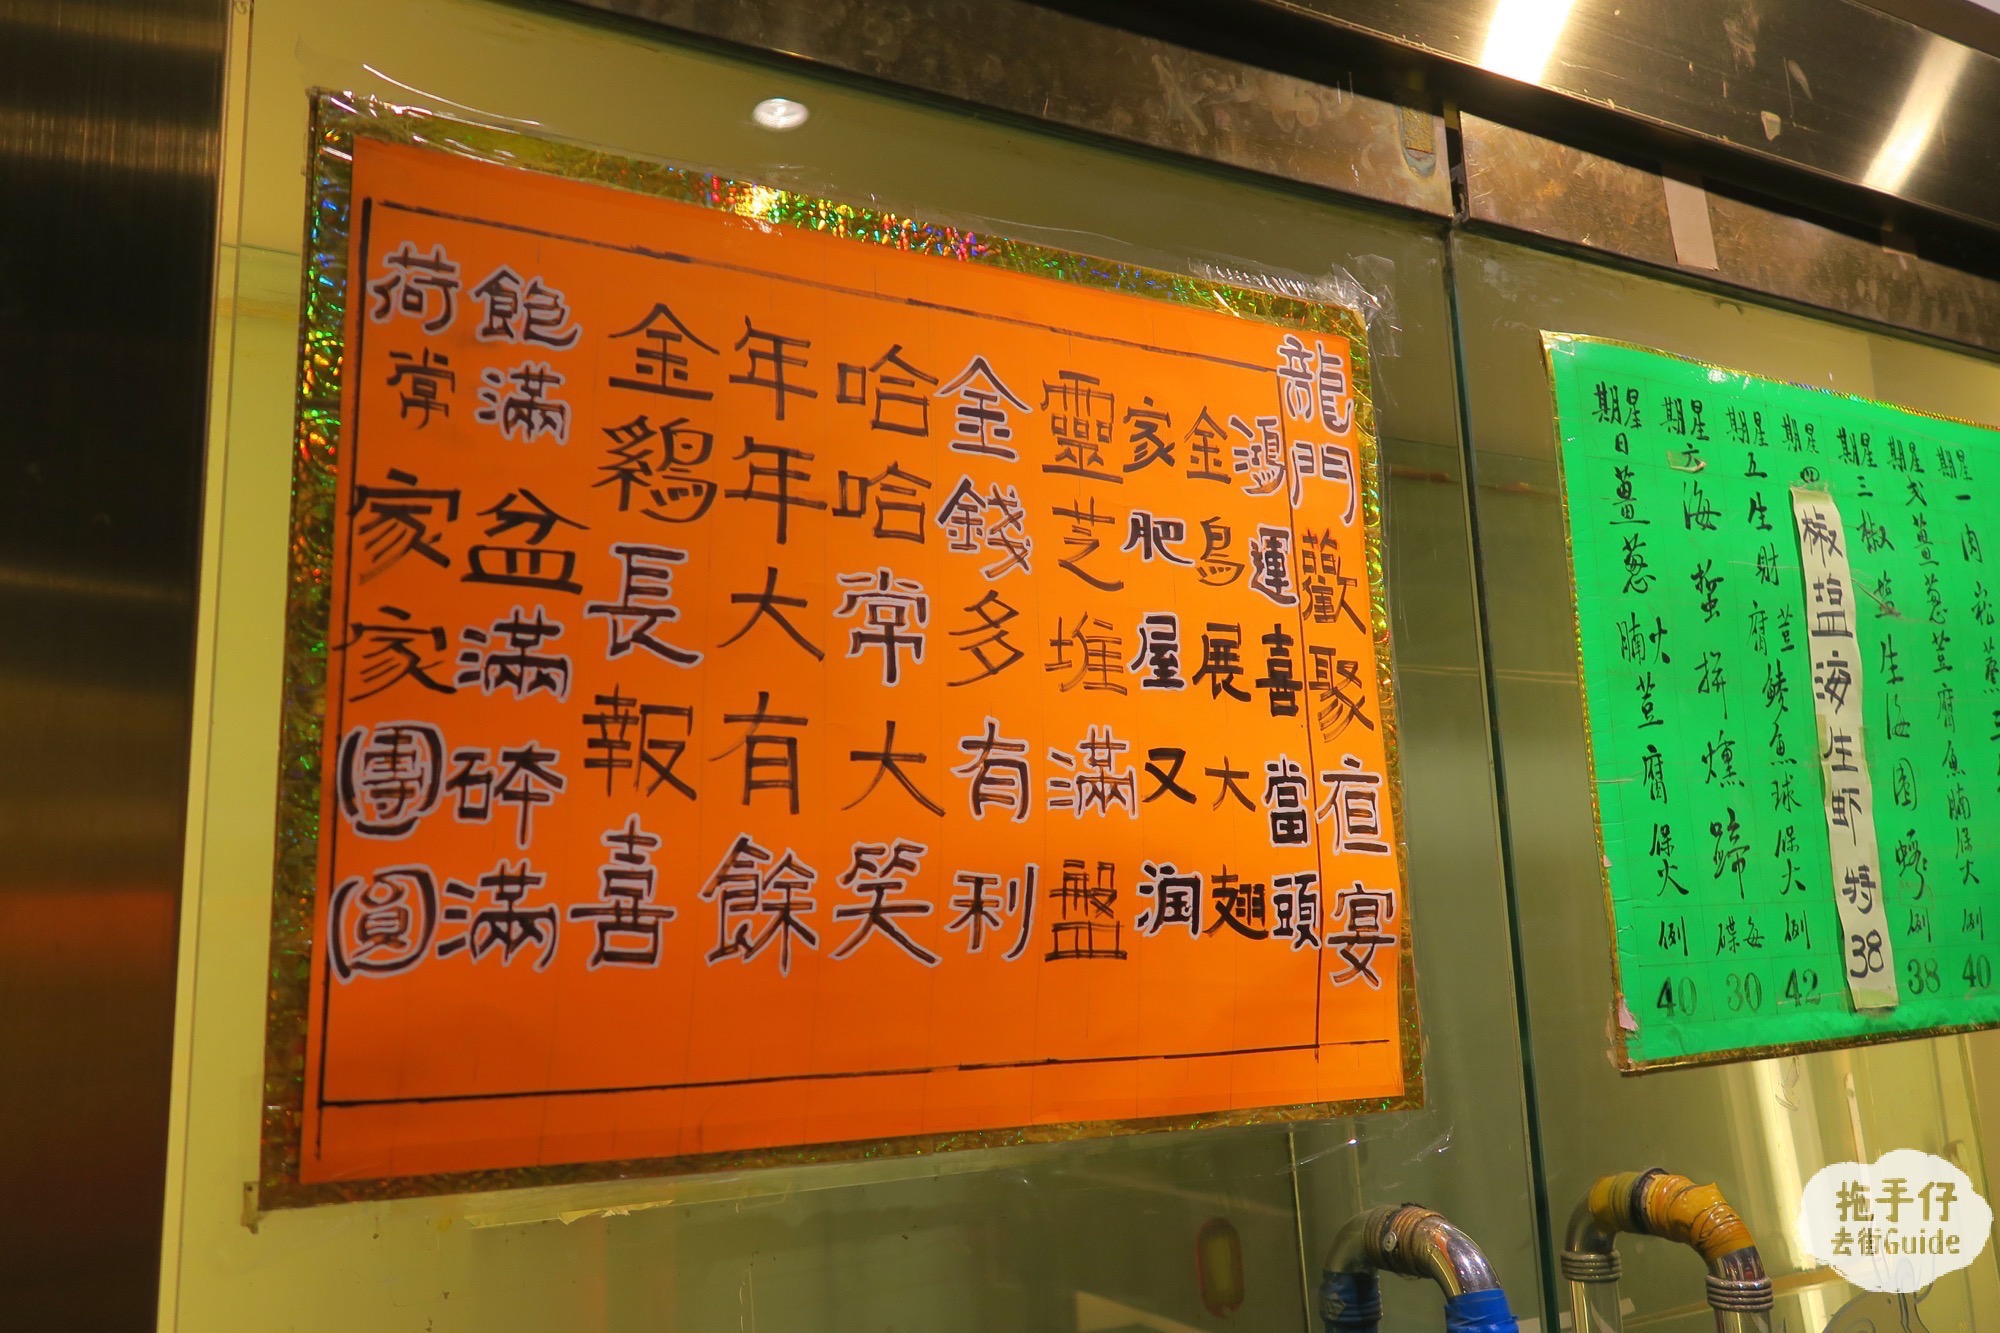 龍門歡聚夜宴
鴻運喜當頭
金鳥展大翅
家肥屋又潤
靈芝堆滿盤
金錢多有利
哈哈常大笑
年年大有餘
金鷄長報喜
飽滿盆滿砵滿
荷常家家團圓
星期一肉
星期弍薑葱荳腐魚腩保火例40
星期三椒塩生海例38
星期四
椒塩海生虾特38
星期五生財荳腐鯪魚球保火例42
星期六海蜇拼燻蹄每碟30
星期日薑葱火腩荳腐保火例40
拖手仔
去街Guide